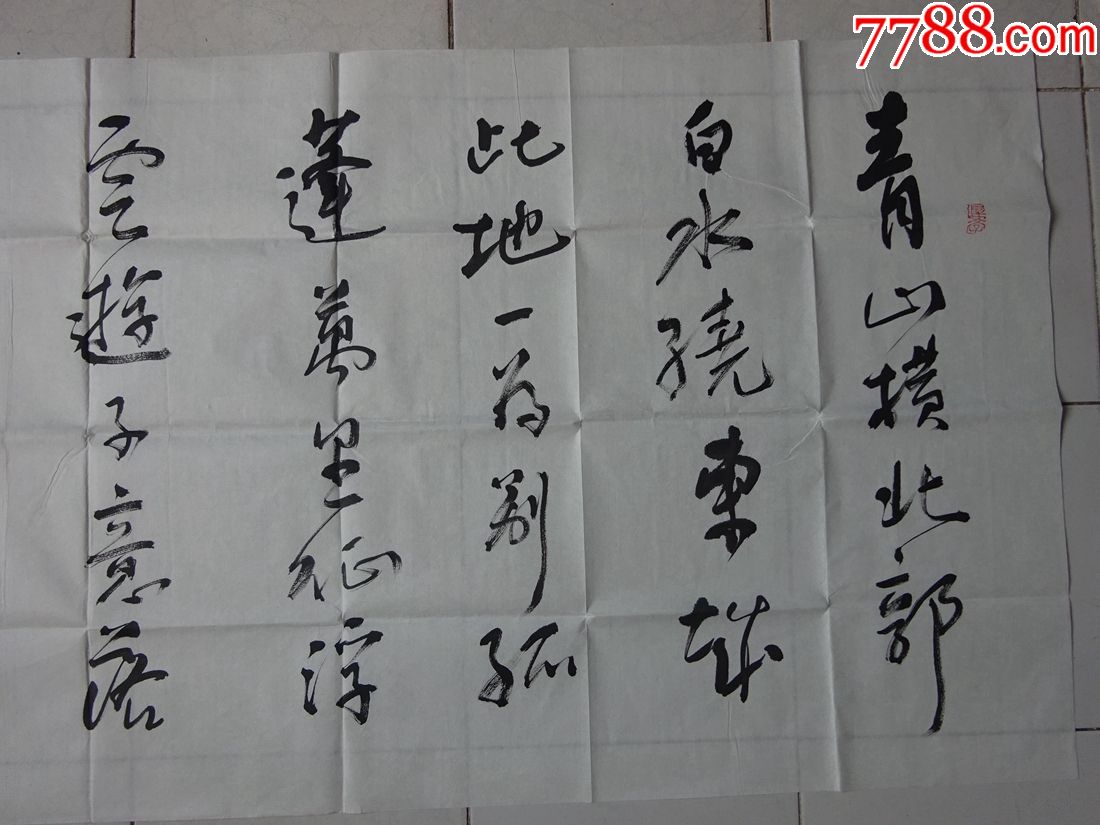 7788.com
青山横北郭
白水繞東城
此地一為别孤
蓬萬里征浮
雲遊子意落